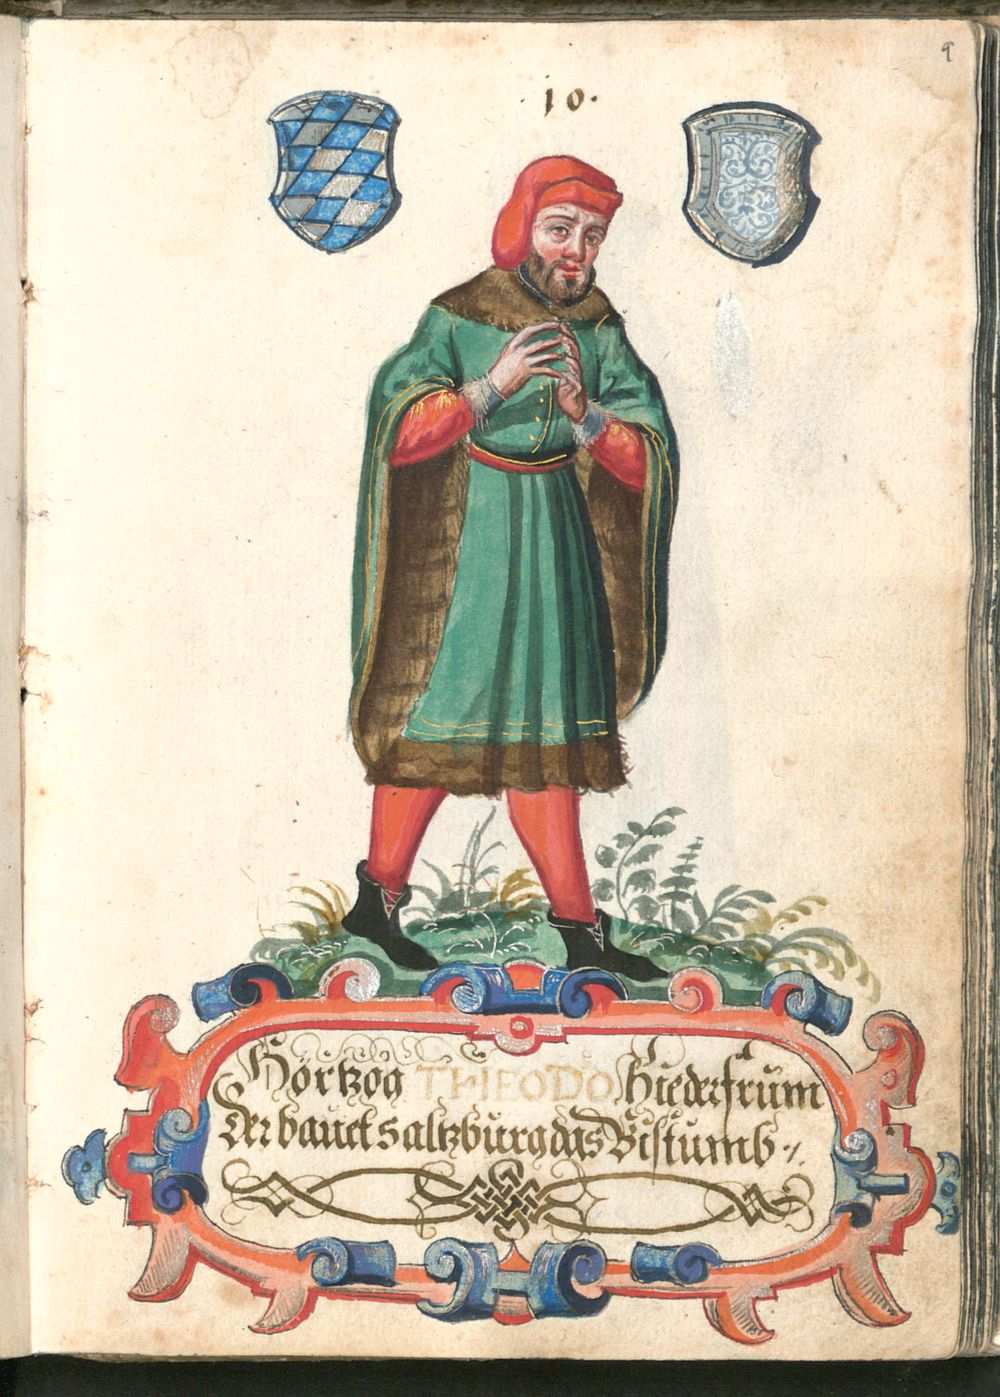 9
·10·
Hörtzog THEODO, hie der frum
der bauet Saltzburg das Bistumb ·/.